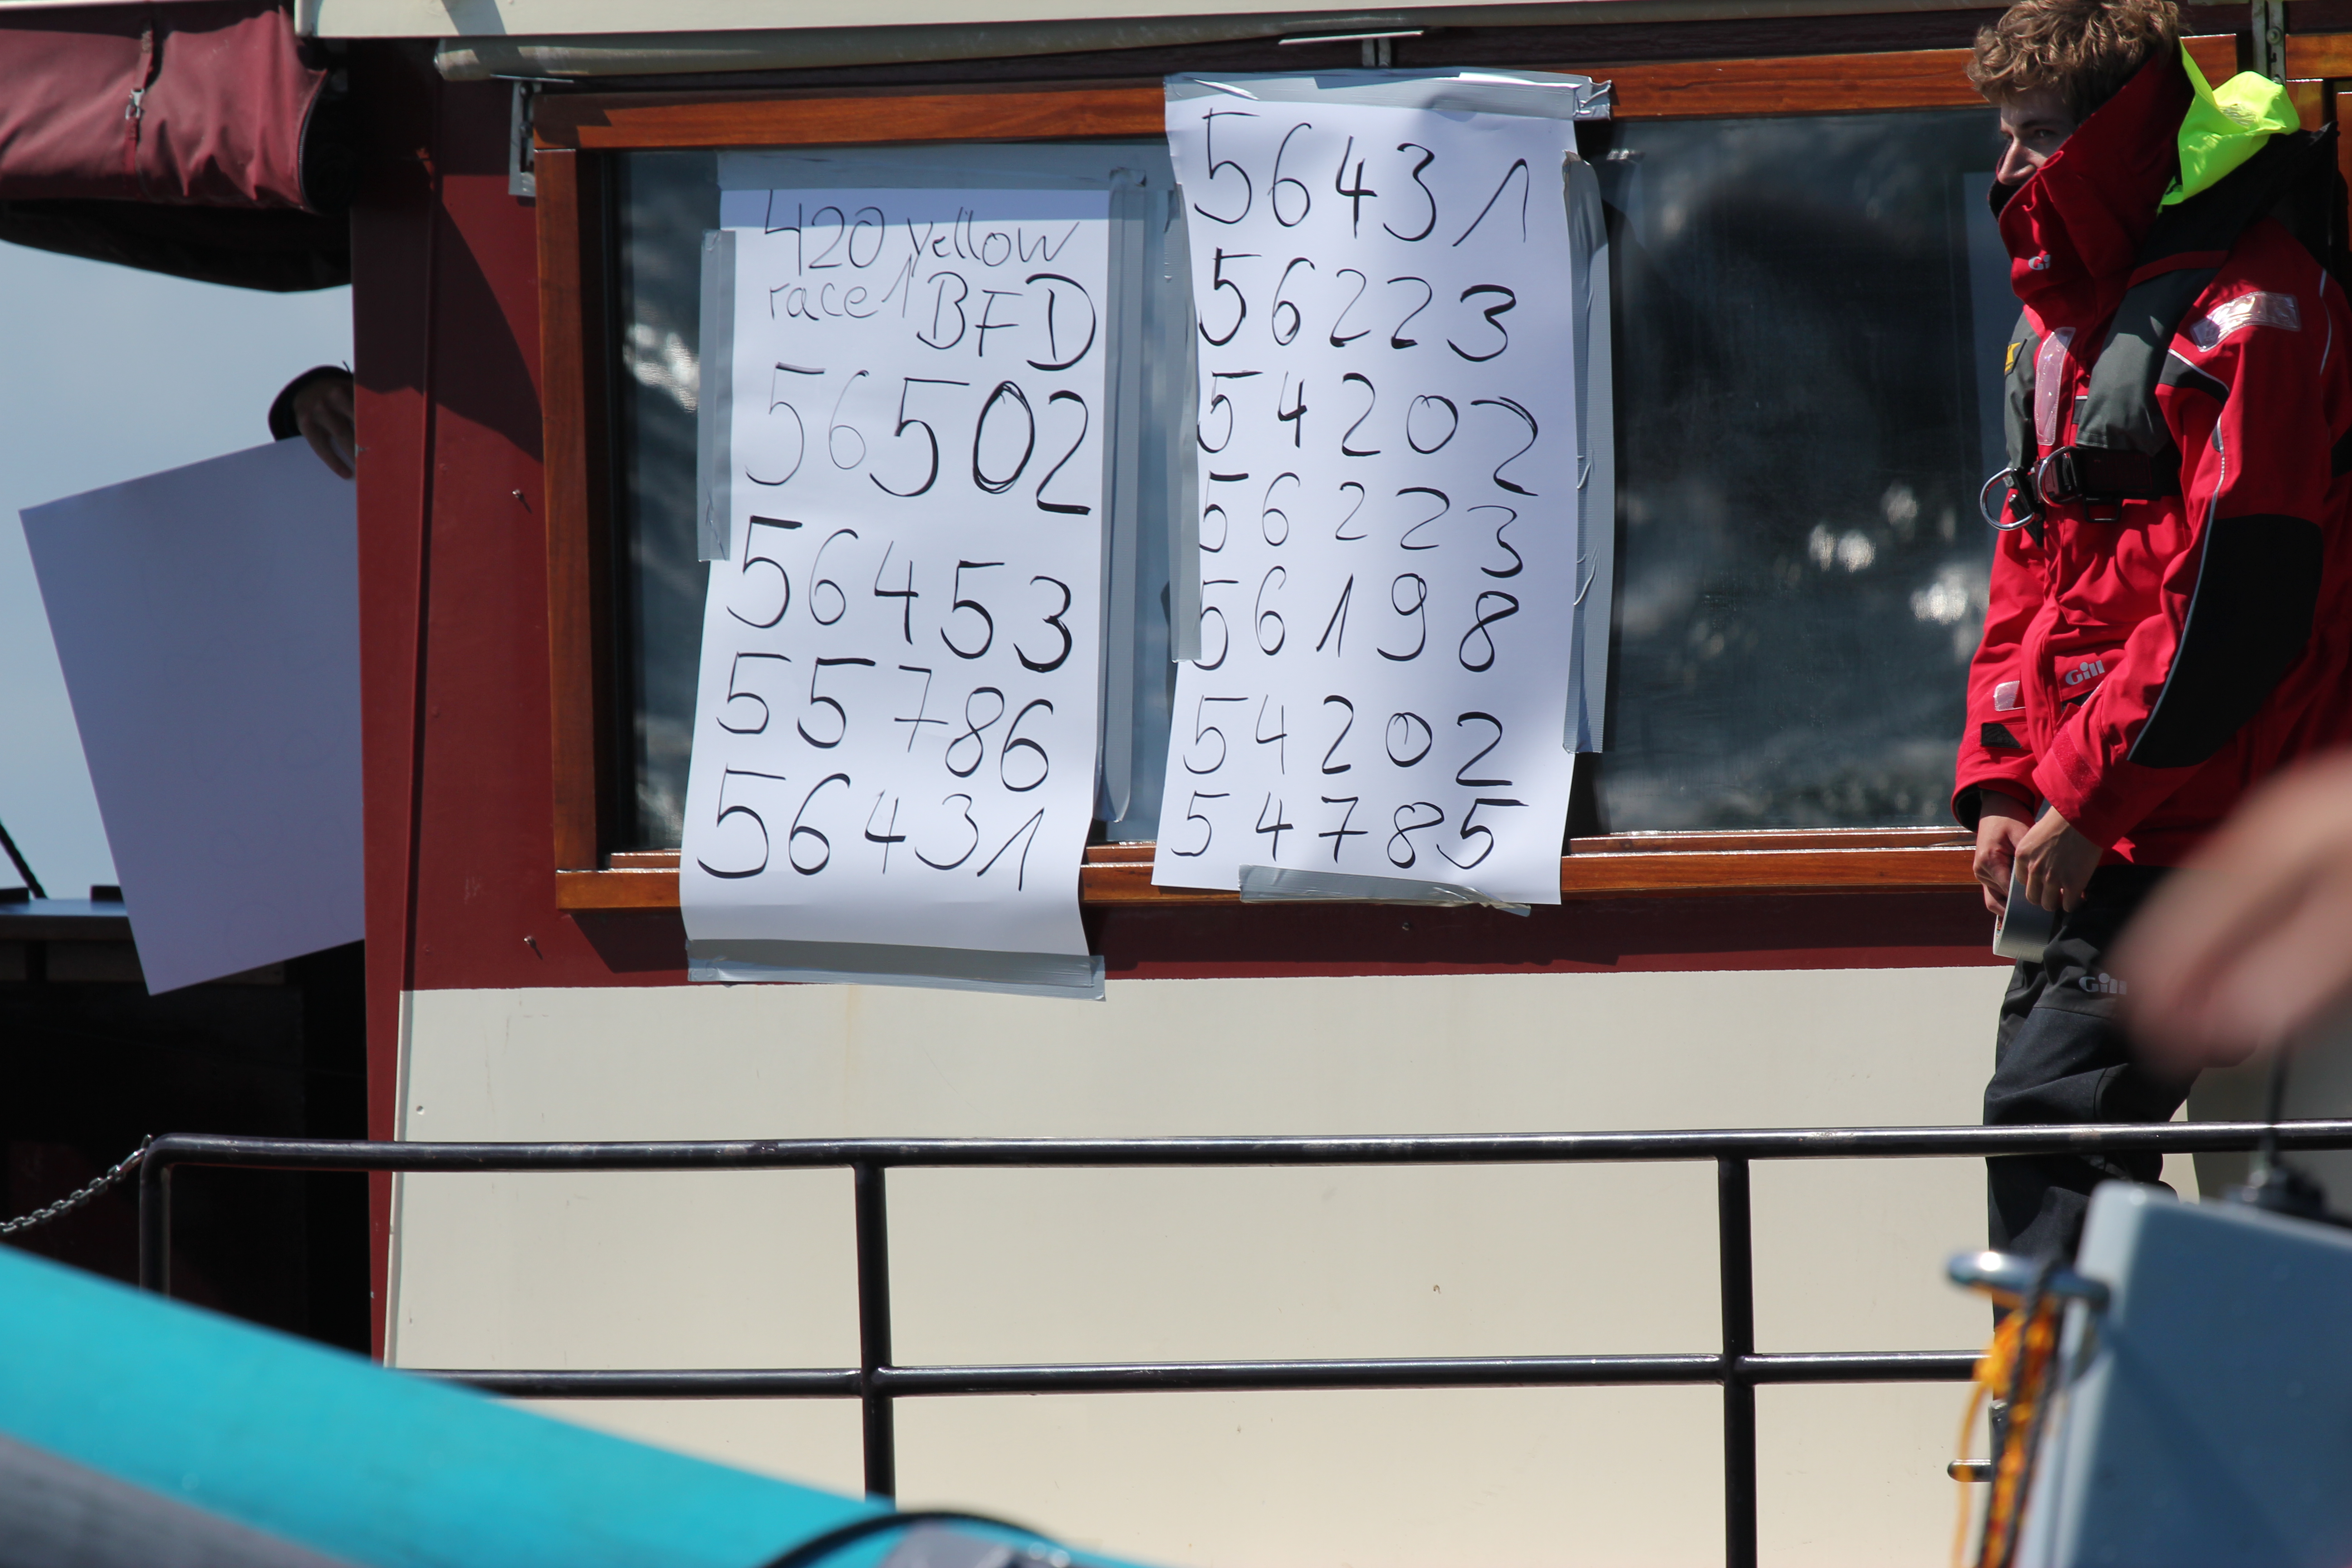 420 yellow
race 1 BFD
56502
56453
55786
56431
56431
56223
54202
56223
56198
54202
54785
Gill
Gill